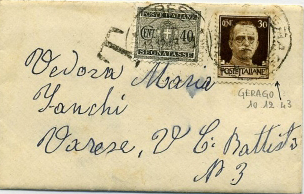 POSTE ITALIANE
CENT 40
SEGNATASSE
CENT 30
POSTE ITALIANE
T
GERAGO
10 12 43
Vedova Maria
Zanchi
Varese, V C. Battisti
N 3